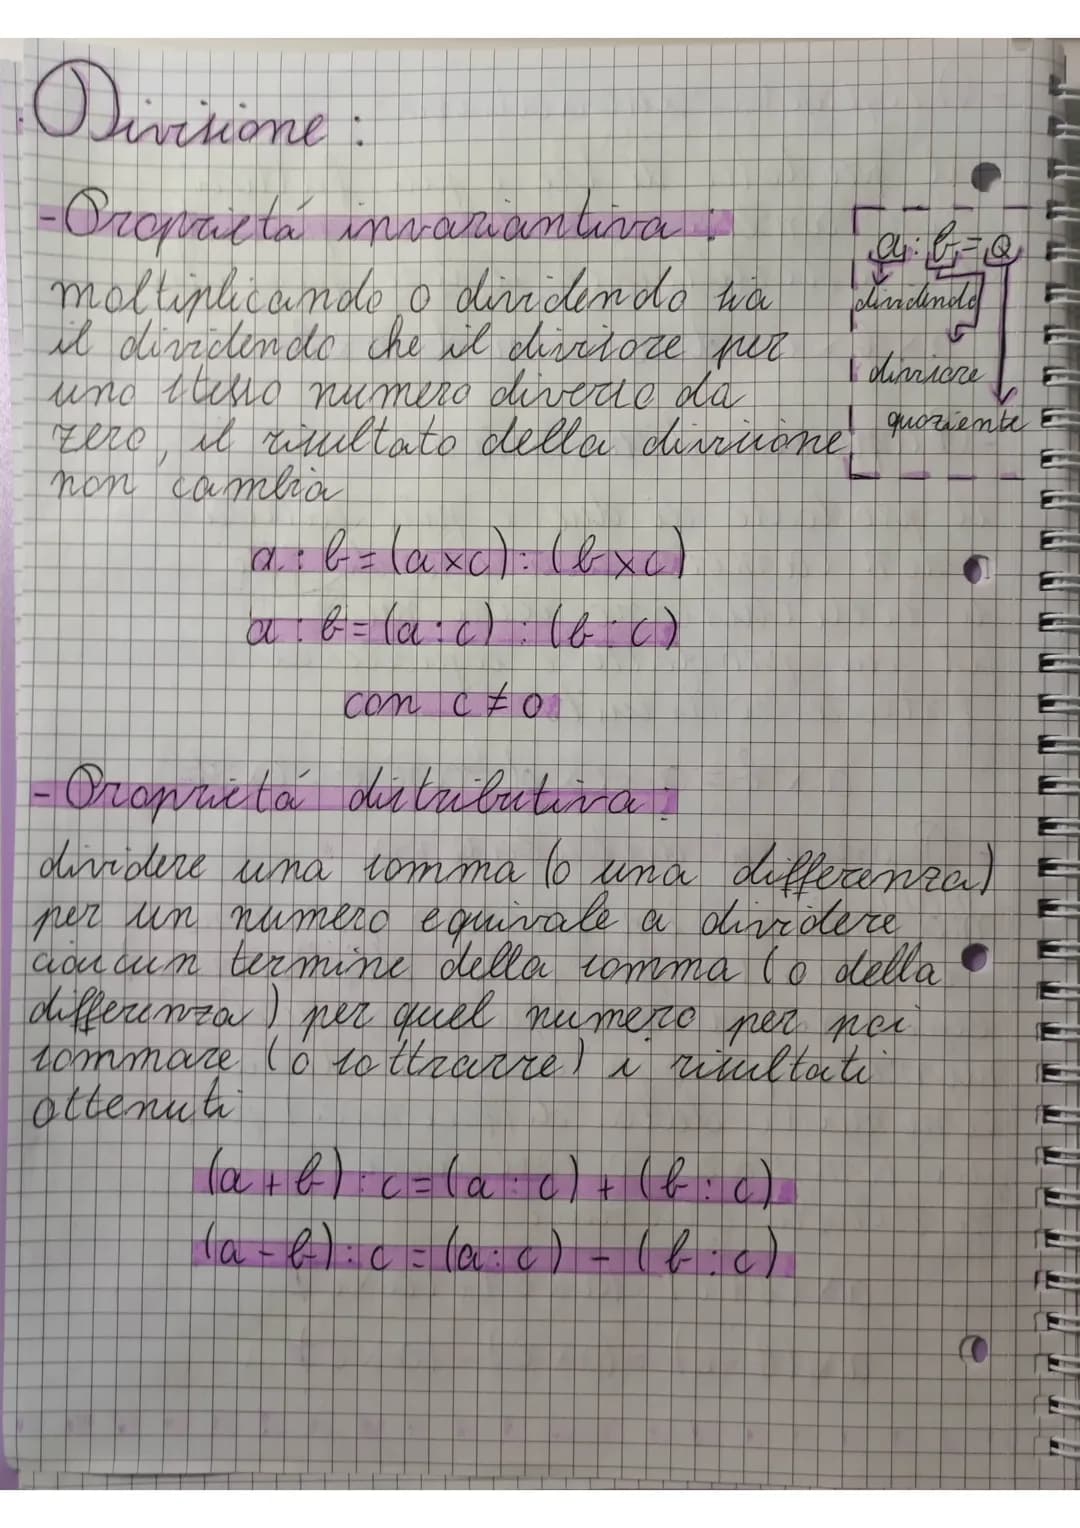 Divisione :
- Proprietá invariantiva :
moltiplicando o dividendo sia
il dividendo che il divisore per
uno stesso numero diverso da
zero, il risultato della divisione
non cambia
a : b = Q
dividendo
divisore
quoziente
a : b = (a x c) : (b x c)
a : b = (a : c) : (b : c)
con c ≠ 0
- Proprietá distributiva :
dividere una somma (o una differenza)
per un numero equivale a dividere
ciascun termine della somma (o della
differenza) per quel numero per poi
sommare (o sottrarre) i risultati
ottenuti
(a + b) : c = (a : c) + (b : c)
(a - b) : c = (a : c) - (b : c)